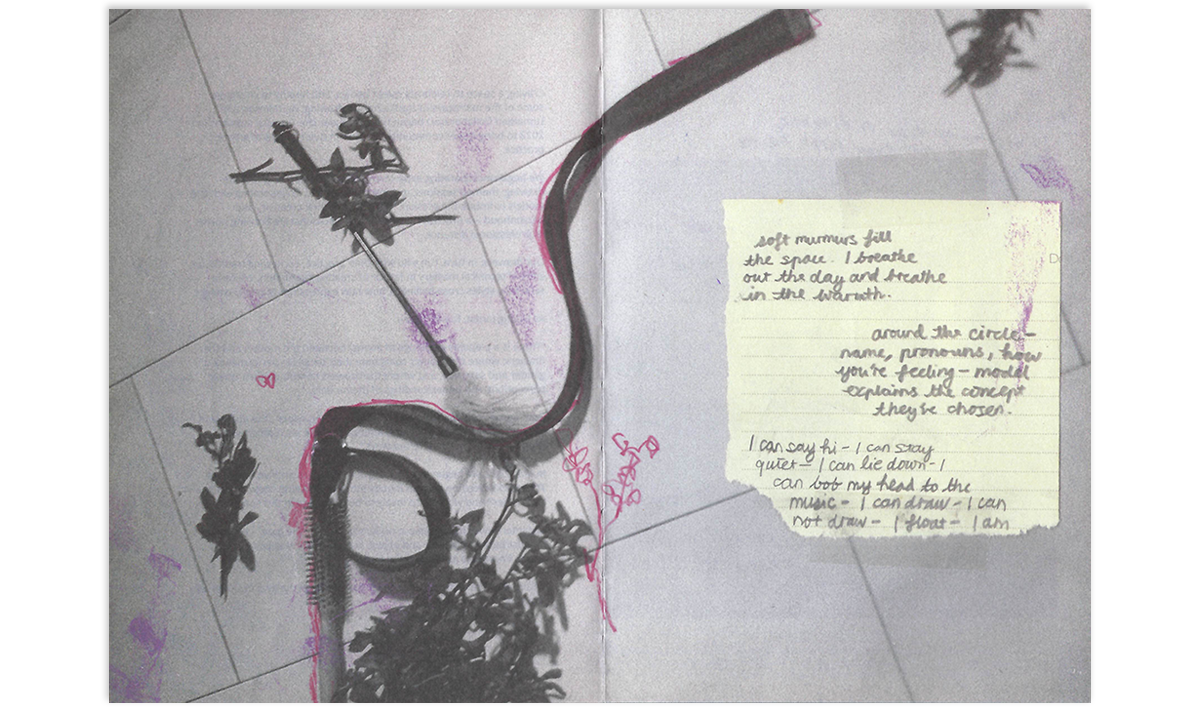 soft murmurs fill
the space. I breathe
out the day and breathe
in the warmth.
around the circle —
name, pronouns, how
you're feeling — model
explains the concept
they've chosen.
I can say hi — I can stay
quiet — I can lie down — I
can bob my head to the
music — I can draw — I can
not draw — I float — I am